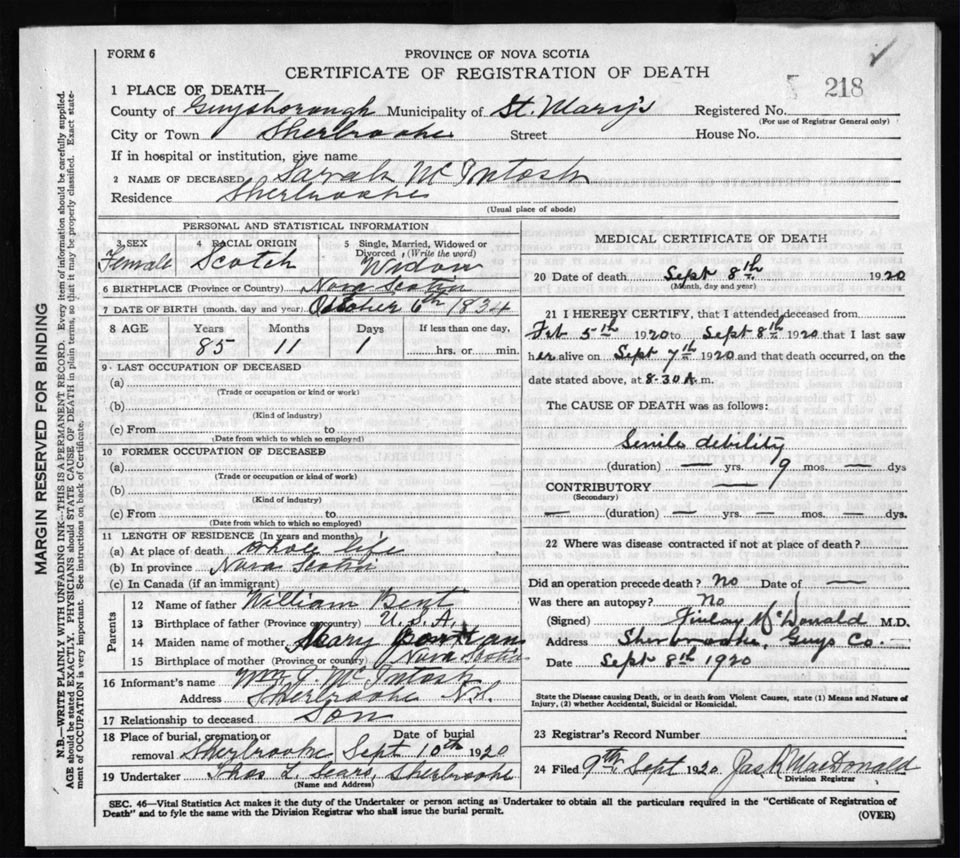 FORM 6
PROVINCE OF NOVA SCOTIA
CERTIFICATE OF REGISTRATION OF DEATH
218
1 PLACE OF DEATH—
County of Guysborough Municipality of St. Mary's Registered No.
(For use of Registrar General only)
City or Town Sherbrooke Street House No.
If in hospital or institution, give name
2 NAME OF DECEASED Sarah McIntosh
Residence Sherbrooke
(Usual place of abode)
PERSONAL AND STATISTICAL INFORMATION
3 SEX Female
4 RACIAL ORIGIN Scotch
5 Single, Married, Widowed or Divorced (Write the word) Widow
6 BIRTHPLACE (Province or Country) Nova Scotia
7 DATE OF BIRTH (month, day and year) October 6th 1834
8 AGE Years Months Days If less than one day,
85 11 1 hrs. or min.
9 LAST OCCUPATION OF DECEASED
(a)
(Trade or occupation or kind or work)
(b)
(Kind of industry)
(c) From to
(Date from which to which so employed)
10 FORMER OCCUPATION OF DECEASED
(a)
(Trade or occupation or kind of work)
(b)
(Kind of industry)
(c) From to
(Date from which to which so employed)
11 LENGTH OF RESIDENCE (In years and months)
(a) At place of death whole life
(b) In province Nova Scotia
(c) In Canada (if an immigrant)
Parents
12 Name of father William Bent
13 Birthplace of father (Province or country) U.S.A.
14 Maiden name of mother Mary
15 Birthplace of mother (Province or country) Nova Scotia
16 Informant's name Wm McIntosh
Address Sherbrooke N.S.
17 Relationship to deceased Son
18 Place of burial, cremation or removal Sherbrooke Date of burial Sept 10th 1920
19 Undertaker Thos L. Sears, Sherbrooke
(Name and Address)
MEDICAL CERTIFICATE OF DEATH
20 Date of death Sept 8th 1920
(Month, day and year)
21 I HEREBY CERTIFY, that I attended deceased from
Feb 5th 1920 to Sept 8th 1920 that I last saw
her alive on Sept 7th 1920 and that death occurred, on the
date stated above, at 8-30 A.m.
The CAUSE OF DEATH was as follows:
Senile debility
(duration) — yrs. 9 mos. — dys
CONTRIBUTORY —
(Secondary)
— (duration) — yrs. — mos. — dys.
22 Where was disease contracted if not at place of death?
Did an operation precede death? No Date of —
Was there an autopsy? No
(Signed) Finlay McDonald M.D.
Address Sherbrooke, Guys Co. —
Date Sept 8th 1920
State the Disease causing Death, or in death from Violent Causes, state (1) Means and Nature of
Injury, (2) whether Accidental, Suicidal or Homicidal.
23 Registrar's Record Number
24 Filed 9th Sept 1920 Jas A MacDonald
Division Registrar
SEC. 46—Vital Statistics Act makes it the duty of the Undertaker or person acting as Undertaker to obtain all the particulars required in the "Certificate of Registration of
Death" and to fyle the same with the Division Registrar who shall issue the burial permit.
(OVER)
MARGIN RESERVED FOR BINDING
N.B.—WRITE PLAINLY WITH UNFADING INK—THIS IS A PERMANENT RECORD. Every item of information should be carefully supplied.
AGE should be stated EXACTLY. PHYSICIANS should STATE CAUSE OF DEATH in plain terms, so that it may be properly classified. Exact state-
ment of OCCUPATION is very important. See instructions on back of Certificate.